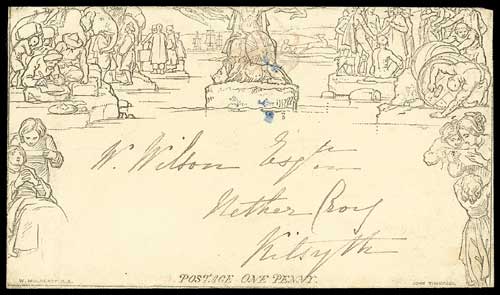 W. Wilson Esqre
Nether Croy
Kilsyth
POSTAGE ONE PENNY.
W. MULREADY R.A.
JOHN THOMPSON